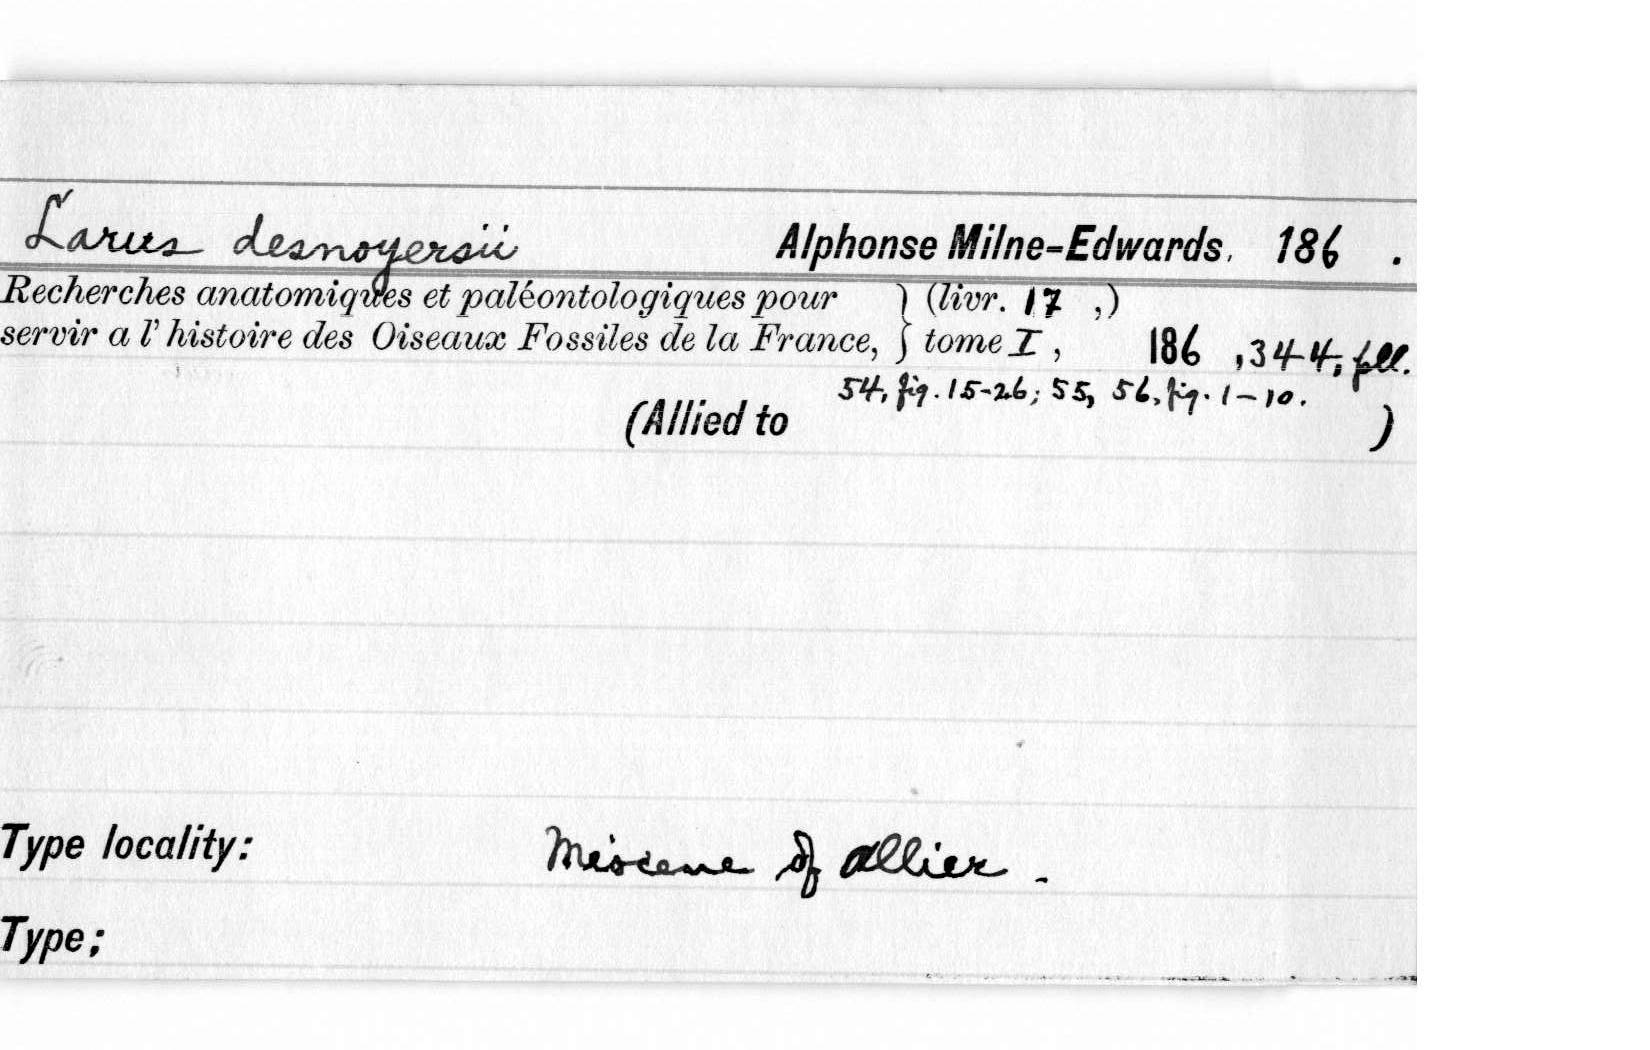 Larus desnoyersii Alphonse Milne-Edwards, 186 .
Recherches anatomiques et paléontologiques pour } (livr. 17 ,)
servir a l' histoire des Oiseaux Fossiles de la France, } tome I , 186 , 344, pll.
54, fig. 15-26; 55, 56, fig. 1-10.
(Allied to )
Type locality: Miocene of Allier.
Type;